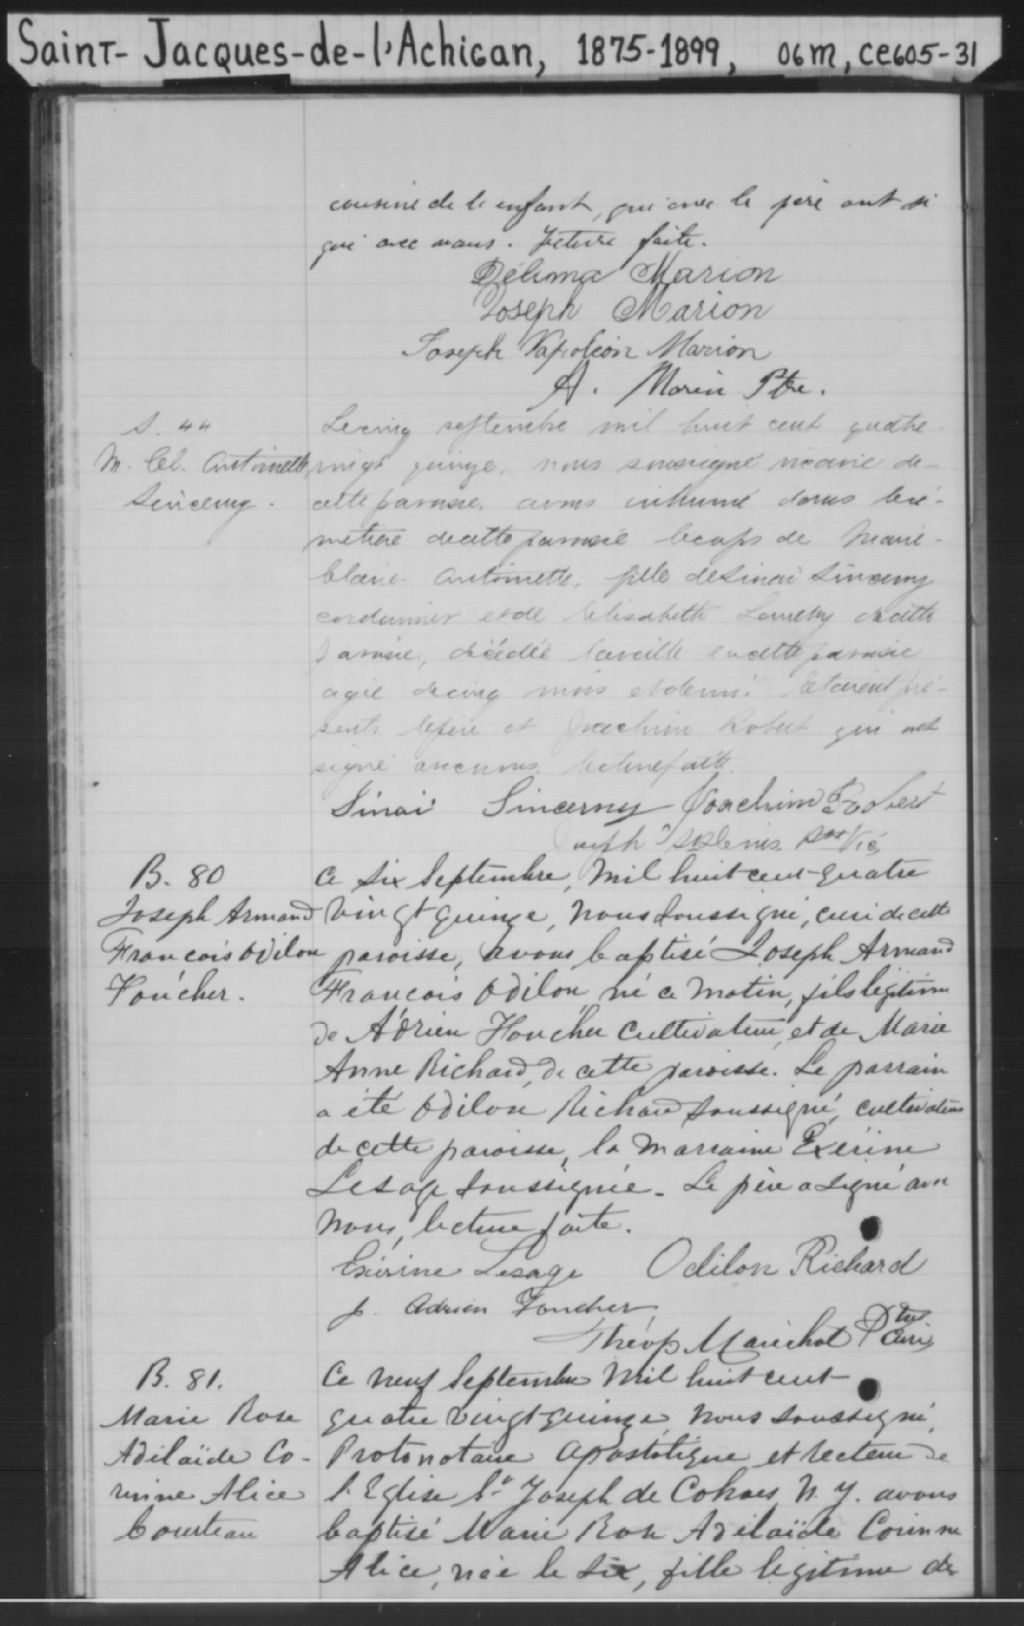 Saint-Jacques-de-l'Achigan, 1875-1899, 06M, CE605-31
cousine de l'enfant, qui avec le père ont si
gné avec nous. Lecture faite.
Délima Marion
Joseph Marion
Joseph Napoléon Marion
A. Morin Ptre.
S. 44
M. Cl. Antoinette
Sincerny.
Le cinq septembre mil huit cent quatre
vingt quinze, nous soussigné vicaire de
cette paroisse, avons inhumé dans le ci-
metière de cette paroisse le corps de Marie-
Claire Antoinette, fille de Sinaï Sincerny
cordonnier et de Elisabeth de cette
paroisse, décédée la veille en cette paroisse
agée de cinq mois et demi. Etaient pré-
sents le père et Joachim Robert qui ont
signé avec nous. Lecture faite.
Sinai Sincerny Joachim Robert
Joseph Ptre Vic.
B. 80
Joseph Armand
François Odilon
Foucher.
Ce six Septembre, mil huit cent quatre
vingt quinze, nous soussigné, curé de cette
paroisse, avons baptisé Joseph Armand
François Odilon né ce matin, fils légitime
de Adrien Foucher cultivateur, et de Marie
Anne Richard, de cette paroisse. Le parrain
a été Odilon Richard soussigné, cultivateur
de cette paroisse, la marraine Exérine
Lesage soussignée. Le père a signé avec
nous, lecture faite.
Exérine Lesage Odilon Richard
J. Adrien Foucher
Théop Maréchal Ptre Curé
B. 81.
Marie Rose
Adélaïde Co-
rinne Alice
Courteau
Ce neuf Septembre mil huit cent
quatre vingt quinze, nous soussigné,
Protonotaire apostolique et recteur de
l'Eglise St Joseph de Cohoes N. Y. avons
baptisé Marie Rose Adélaïde Corinne
Alice, née le six, fille légitime de